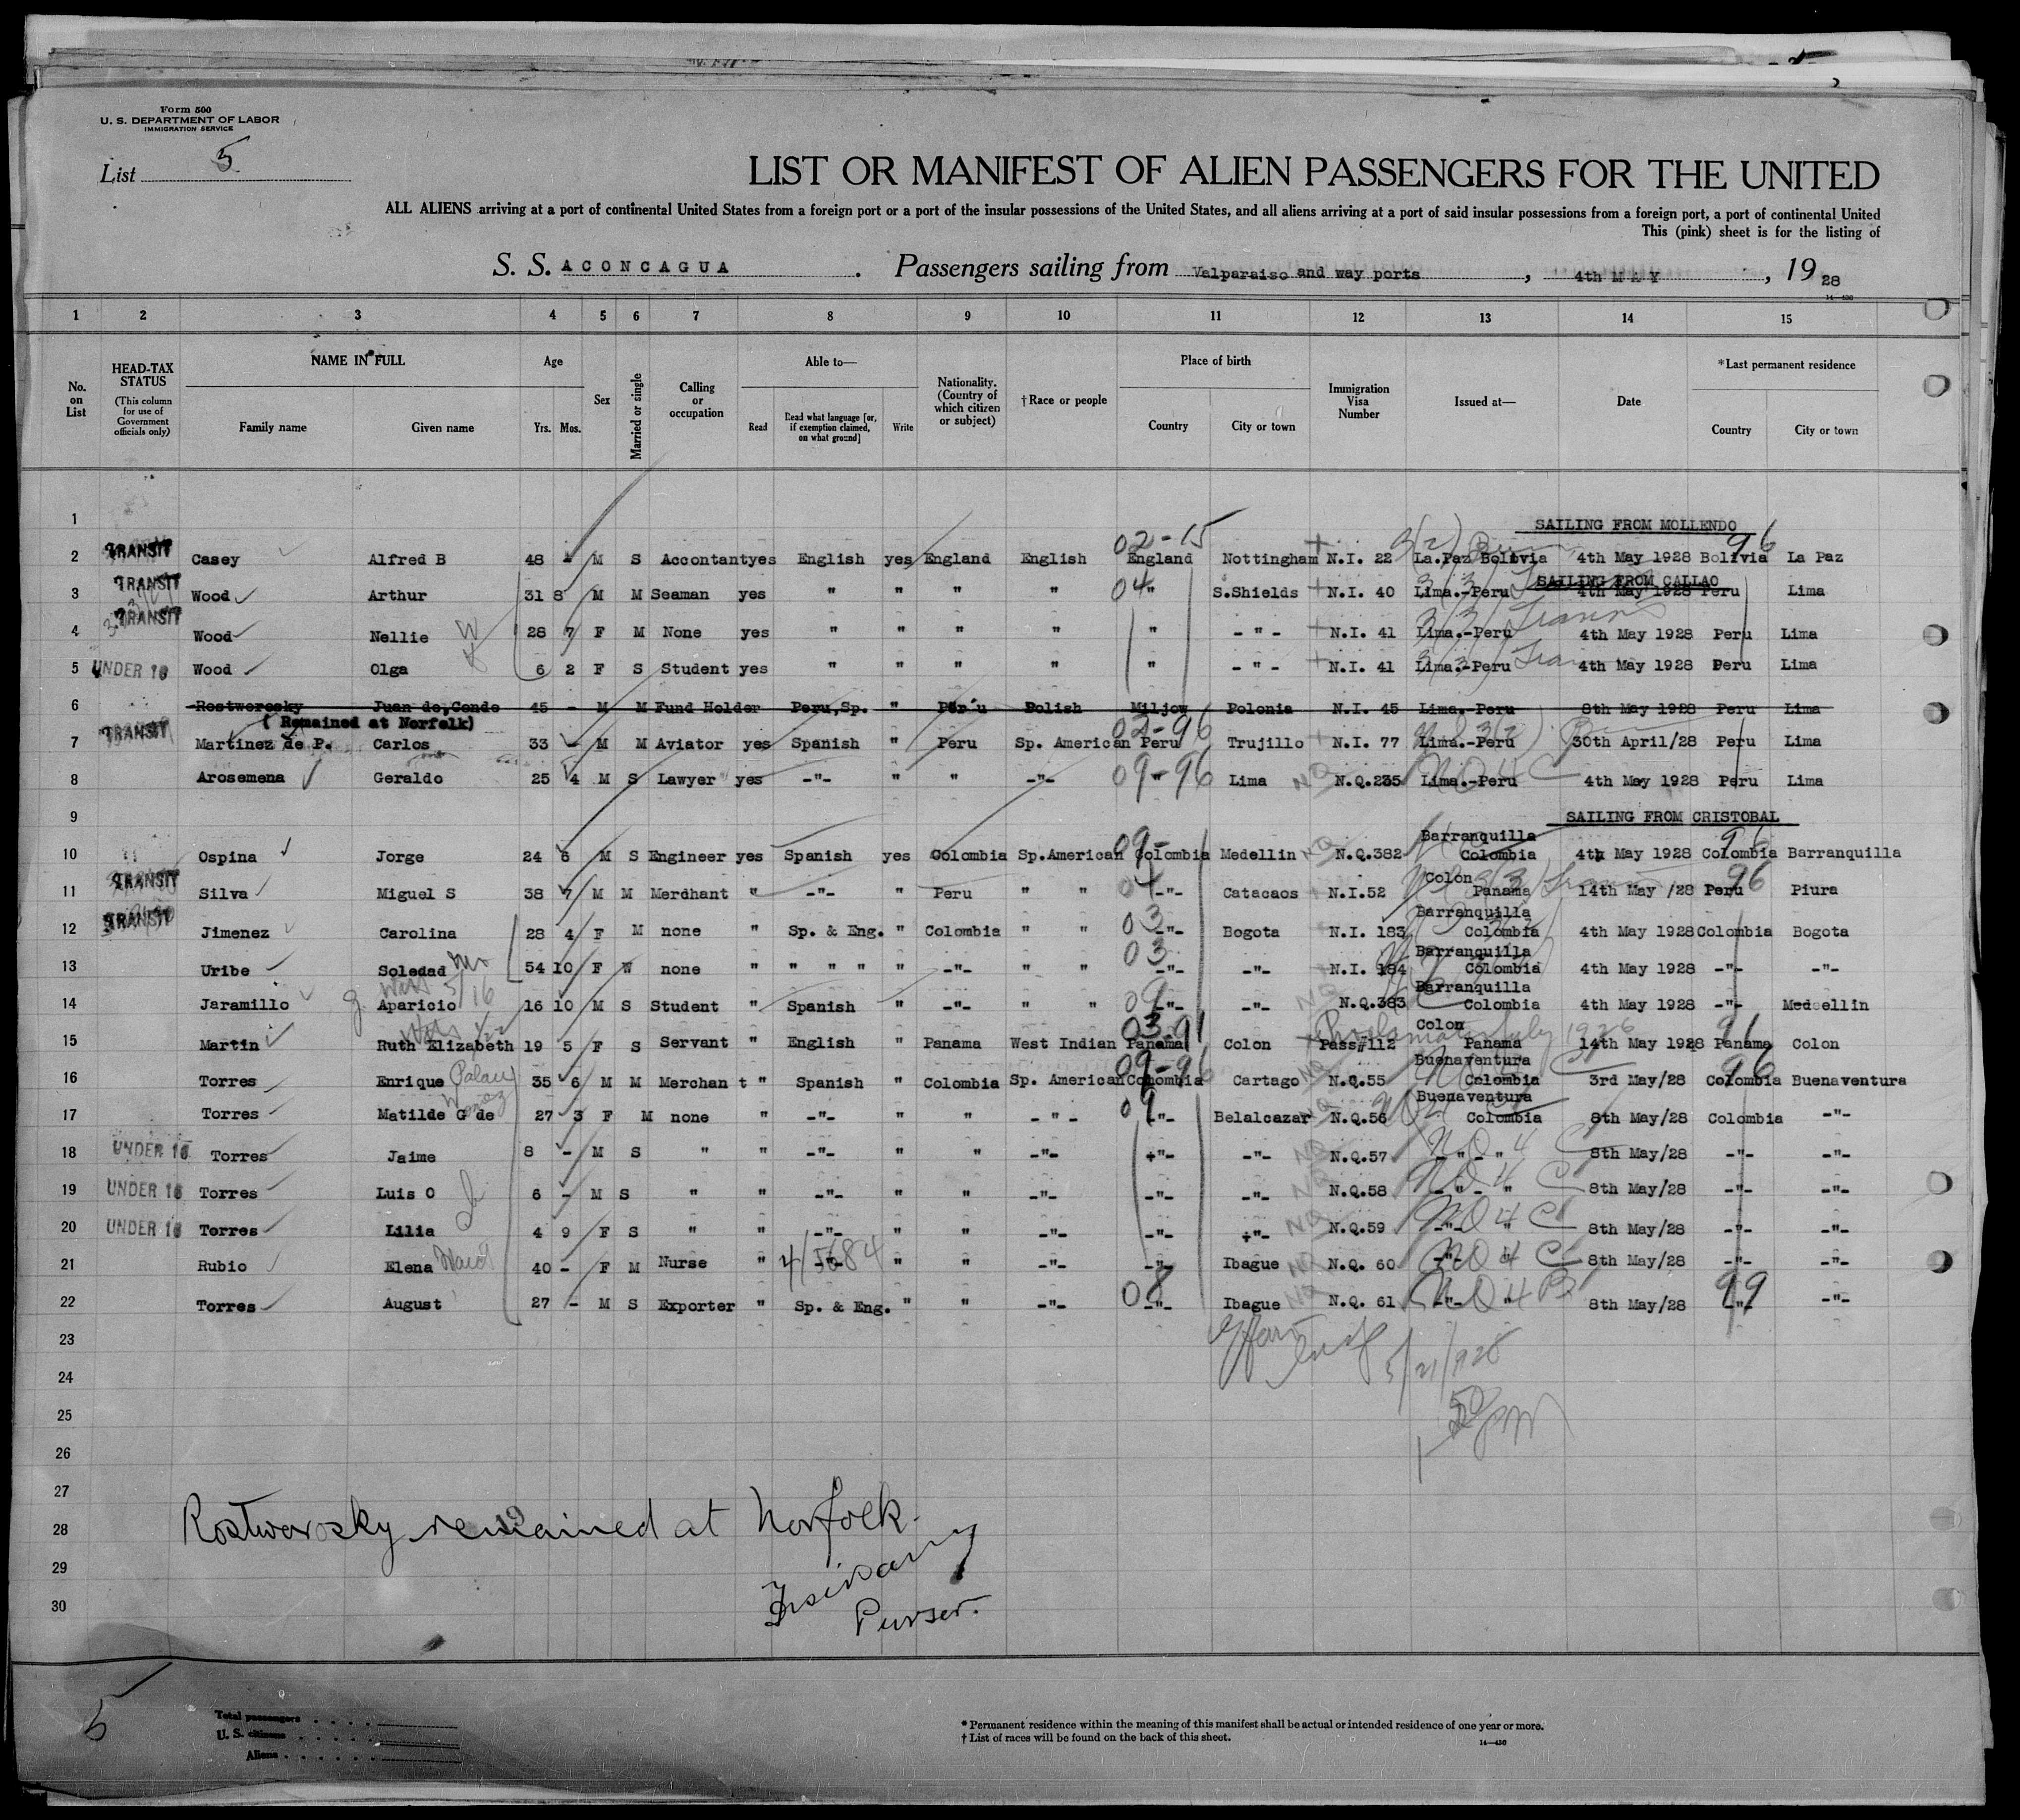 Form 500
U. S. DEPARTMENT OF LABOR
IMMIGRATION SERVICE
List 5
LIST OR MANIFEST OF ALIEN PASSENGERS FOR THE UNITED
ALL ALIENS arriving at a port of continental United States from a foreign port or a port of the insular possessions of the United States, and all aliens arriving at a port of said insular possessions from a foreign port, a port of continental United
This (pink) sheet is for the listing of
S. S. ACONCAGUA . Passengers sailing from Valparaiso and way ports , 4th MAY , 19 28
14—430
1 2 3 4 5 6 7 8 9 10 11 12 13 14 15
No. on List
HEAD-TAX STATUS (This column for use of Government officials only)
NAME IN FULL Family name Given name
Age Yrs. Mos.
Sex
Married or single
Calling or occupation
Able to— Read Read what language [or, if exemption claimed, on what ground] Write
Nationality. (Country of which citizen or subject)
†Race or people
Place of birth Country City or town
Immigration Visa Number
Issued at—
Date
*Last permanent residence Country City or town
1 SAILING FROM MOLLENDO
02-15 96
2 TRANSIT Casey Alfred B 48 - M S Accountant yes English yes England English England Nottingham N.I. 22 La.Paz Bolivia 4th May 1928 Bolivia La Paz
SAILING FROM CALLAO
3 TRANSIT Wood Arthur 31 8 M M Seaman yes " " " " 04 " S.Shields N.I. 40 Lima.-Peru 4th May 1928 Peru Lima
4 TRANSIT Wood Nellie 28 7 F M None yes " " " " " - " - N.I. 41 Lima.-Peru 4th May 1928 Peru Lima
5 UNDER 16 Wood Olga 6 2 F S Student yes " " " " " - " - N.I. 41 Lima.-Peru 4th May 1928 Peru Lima
6 Rostworosky Juan de, Conde 45 - M M Fund Holder Peru,Sp. " Peru Polish Miljow Polonia N.I. 45 Lima.-Peru 8th May 1928 Peru Lima
( Remained at Norfolk)
02-96
7 TRANSIT Martinez de P. Carlos 33 - M M Aviator yes Spanish " Peru Sp. American Peru Trujillo N.I. 77 Lima.-Peru 30th April/28 Peru Lima
8 Arosemena Geraldo 25 4 M S Lawyer yes -"- " " -"- 09-96 " Lima N.Q.235 Lima.-Peru 4th May 1928 Peru Lima
9 SAILING FROM CRISTOBAL
Barranquilla
10 Ospina Jorge 24 6 M S Engineer yes Spanish yes Colombia Sp.American 09- Colombia Medellin N.Q.382 Colombia 4th May 1928 Colombia 96 Barranquilla
Colon
11 TRANSIT Silva Miguel S 38 7 M M Merdhant " -"- " Peru " " 04 -"- Catacaos N.I.52 Panama 14th May /28 Peru 96 Piura
Barranquilla
12 TRANSIT Jimenez Carolina 28 4 F M none " Sp. & Eng. " Colombia " " 03 -"- Bogota N.I. 183 Colombia 4th May 1928 Colombia Bogota
Barranquilla
13 Uribe Soledad 54 10 F W none " " " " " -"- " " 03 -"- -"- N.I. 184 Colombia 4th May 1928 -"- -"-
Barranquilla
14 Jaramillo Aparicio 16 10 M S Student " Spanish " -"- " " 09 -"- -"- N.Q.383 Colombia 4th May 1928 -"- Medellin
Colon
15 Martin Ruth Elizabeth 19 5 F S Servant " English " Panama West Indian 03-91 Panama Colon Pass#112 Panama 14th May 1928 Panama 96 Colon
Buenaventura
16 Torres Enrique 35 6 M M Merchant " Spanish " Colombia Sp. American 09-96 Colombia Cartago N.Q.55 Colombia 3rd May/28 Colombia 96 Buenaventura
Buenaventura
17 Torres Matilde G de 27 3 F M none " -"- " " - " - 09 -"- Belalcazar N.Q.56 " Colombia 8th May/28 Colombia -"-
18 UNDER 16 Torres Jaime 8 - M S " " -"- " " -"- -"- -"- N.Q.57 - " - " 8th May/28 -"- -"-
19 UNDER 16 Torres Luis O 6 - M S " " -"- " " -"- -"- -"- N.Q.58 - " - " 8th May/28 -"- -"-
20 UNDER 16 Torres Lilia 4 9 F S " " -"- " " -"- -"- -"- N.Q.59 -"- " 8th May/28 -"- -"-
21 Rubio Elena 40 - F M Nurse " 4/5684 -"- " " -"- -"- Ibague N.Q. 60 -"- " 8th May/28 -"- -"-
22 Torres August 27 - M S Exporter " Sp. & Eng. " " -"- 08 -"- Ibague N.Q. 61 -"- " 8th May/28 99 -"- -"-
23
24 5/21/1928
25
26
27
28 Rostworosky remained at Norfolk.
29
30 Purser.
5
Total passengers
U. S. citizens
Aliens
*Permanent residence within the meaning of this manifest shall be actual or intended residence of one year or more.
†List of races will be found on the back of this sheet.
14—430